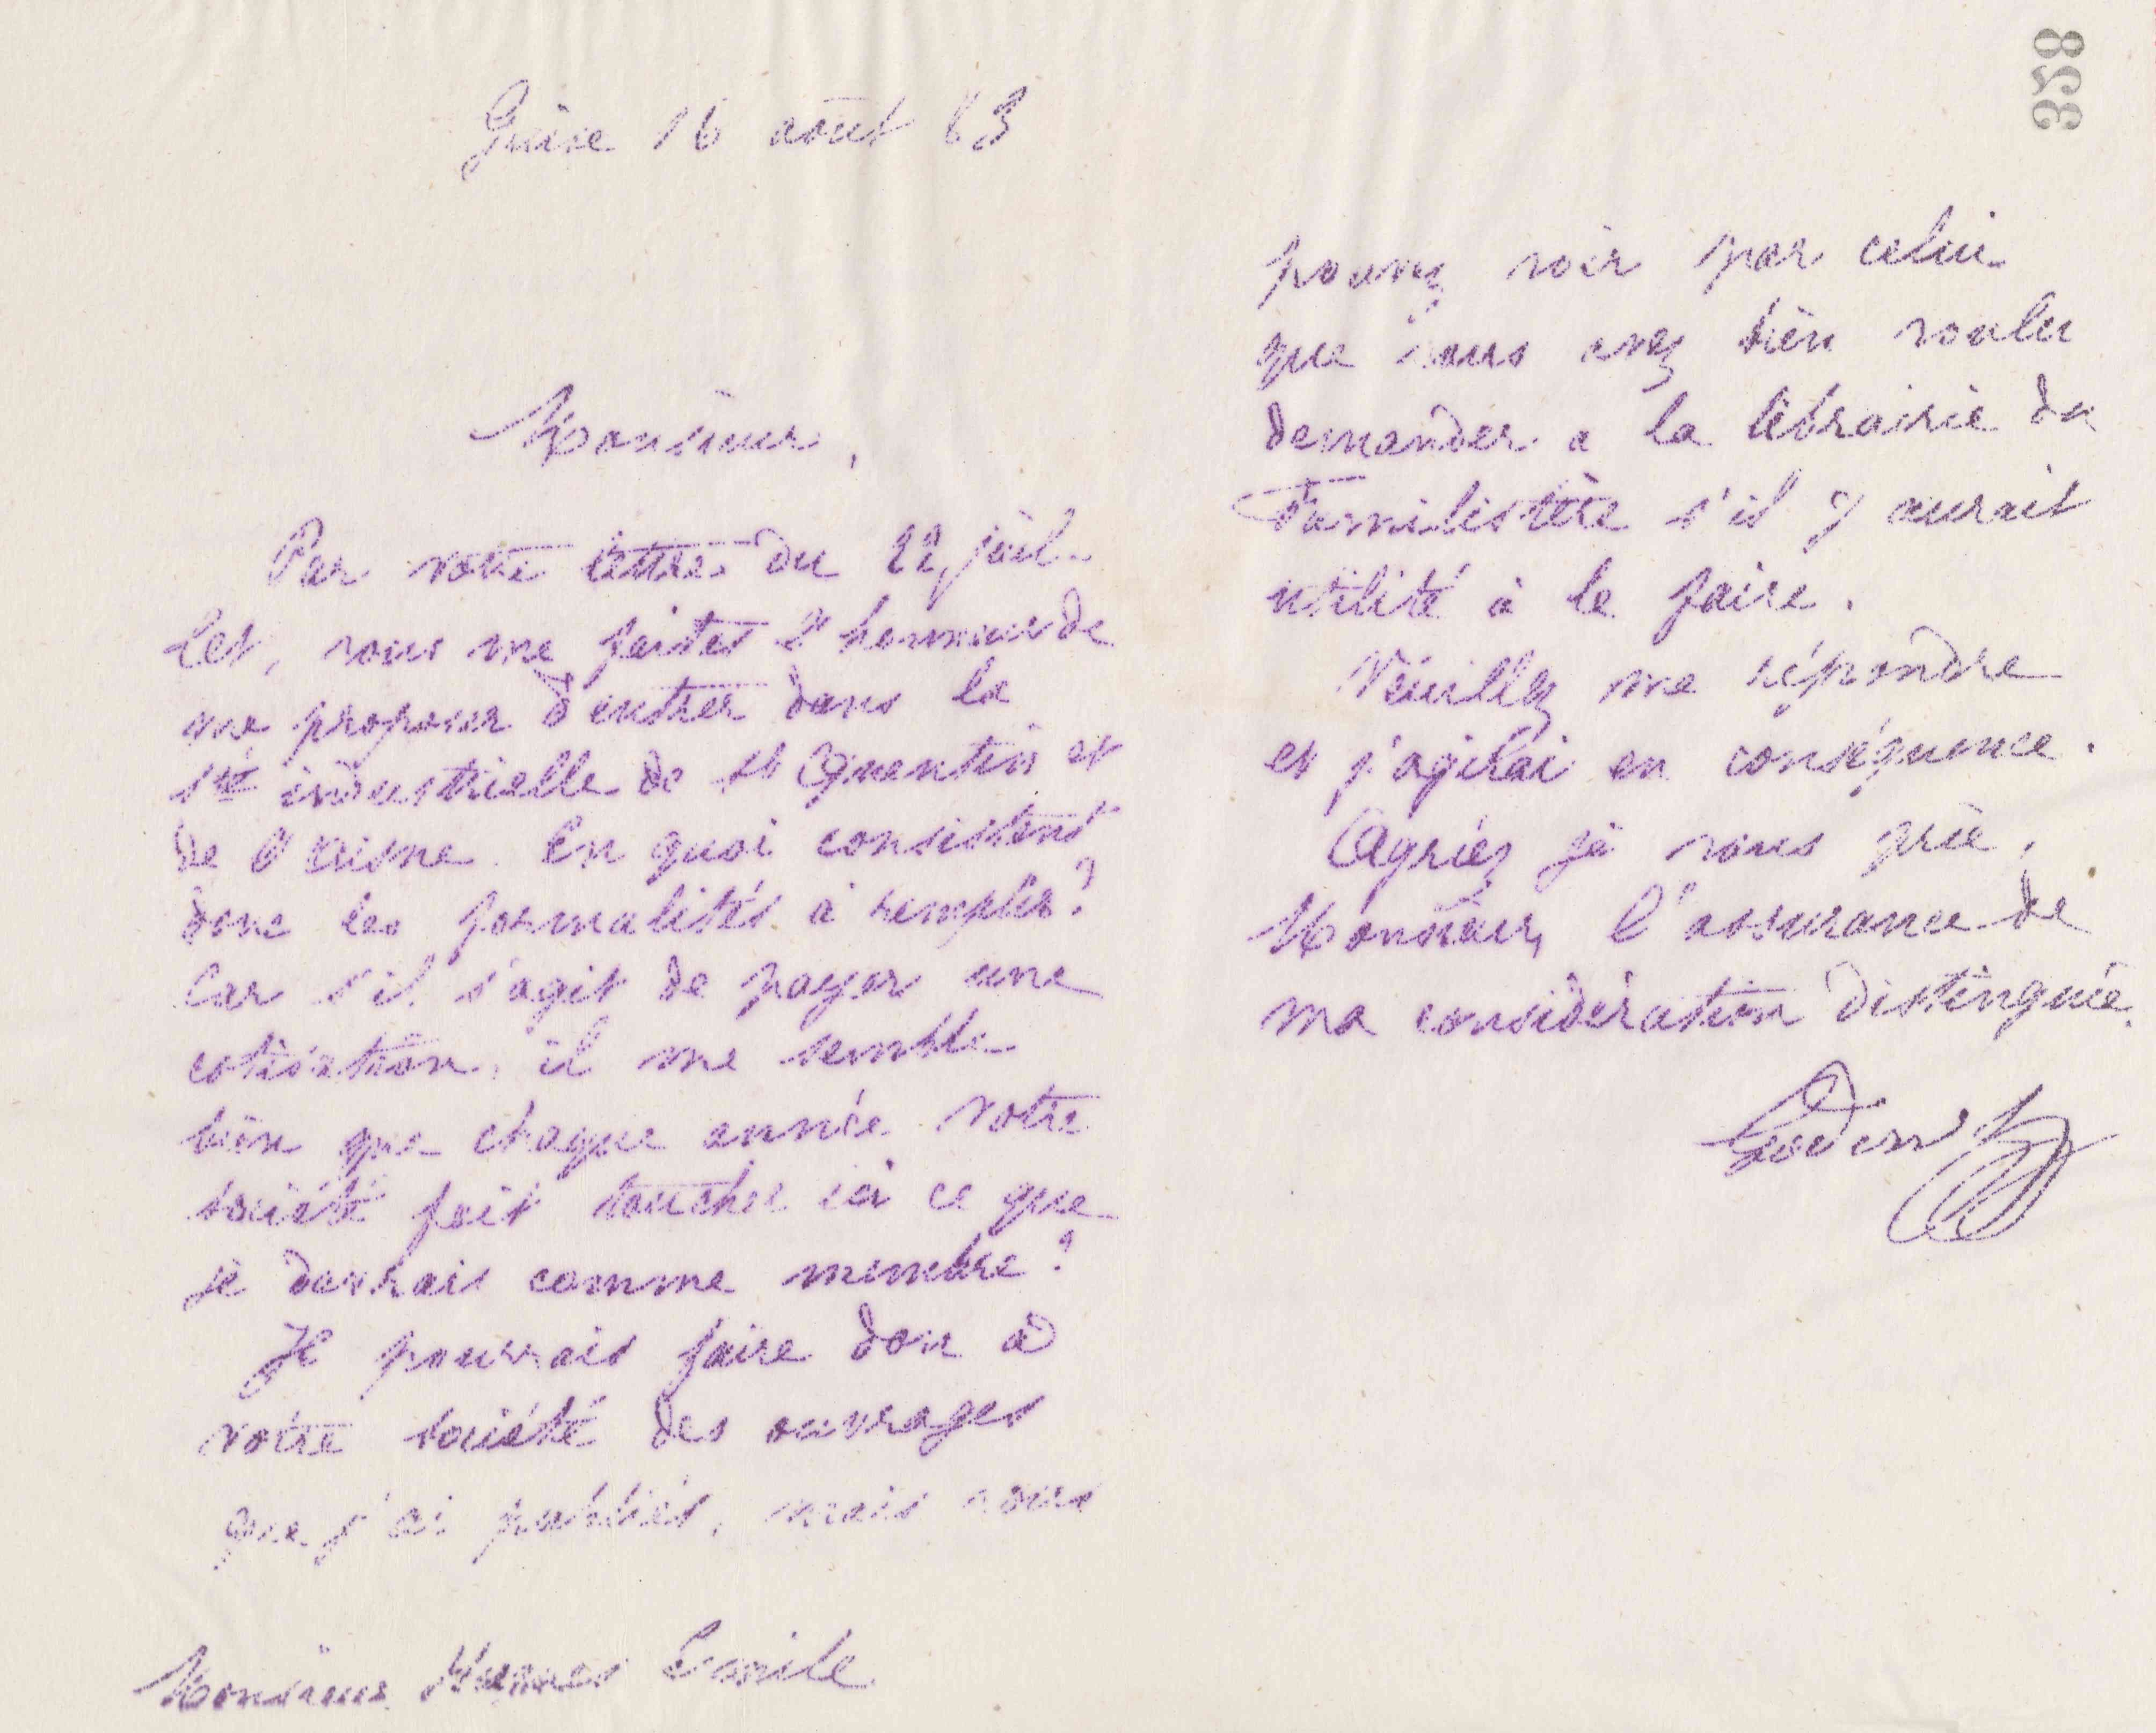 Guise 16 août 83
Monsieur,
Par votre lettre du 22 juil-
let, vous me faites l'honneur de
me proposer d'entrer dans la
Sté industrielle de St Quentin et
de l'Aisne. En quoi consistent
donc les formalités à remplir?
Car s'il s'agit de payer une
cotisation, il me semble
bien que chaque année votre
société fait toucher ici ce que
je devrais comme membre?
Je pourrais faire don à
votre société des ouvrages
que j'ai publiés, mais vous
Monsieur Emile
358
pouvez voir par celui
que vous avez bien voulu
demander a la librairie du
Familistère s'il y aurait
utilité à le faire.
Veuillez me répondre
et j'agirai en conséquence.
Agréez je vous prie,
Monsieur, l'assurance de
ma considération distinguée.
Godin